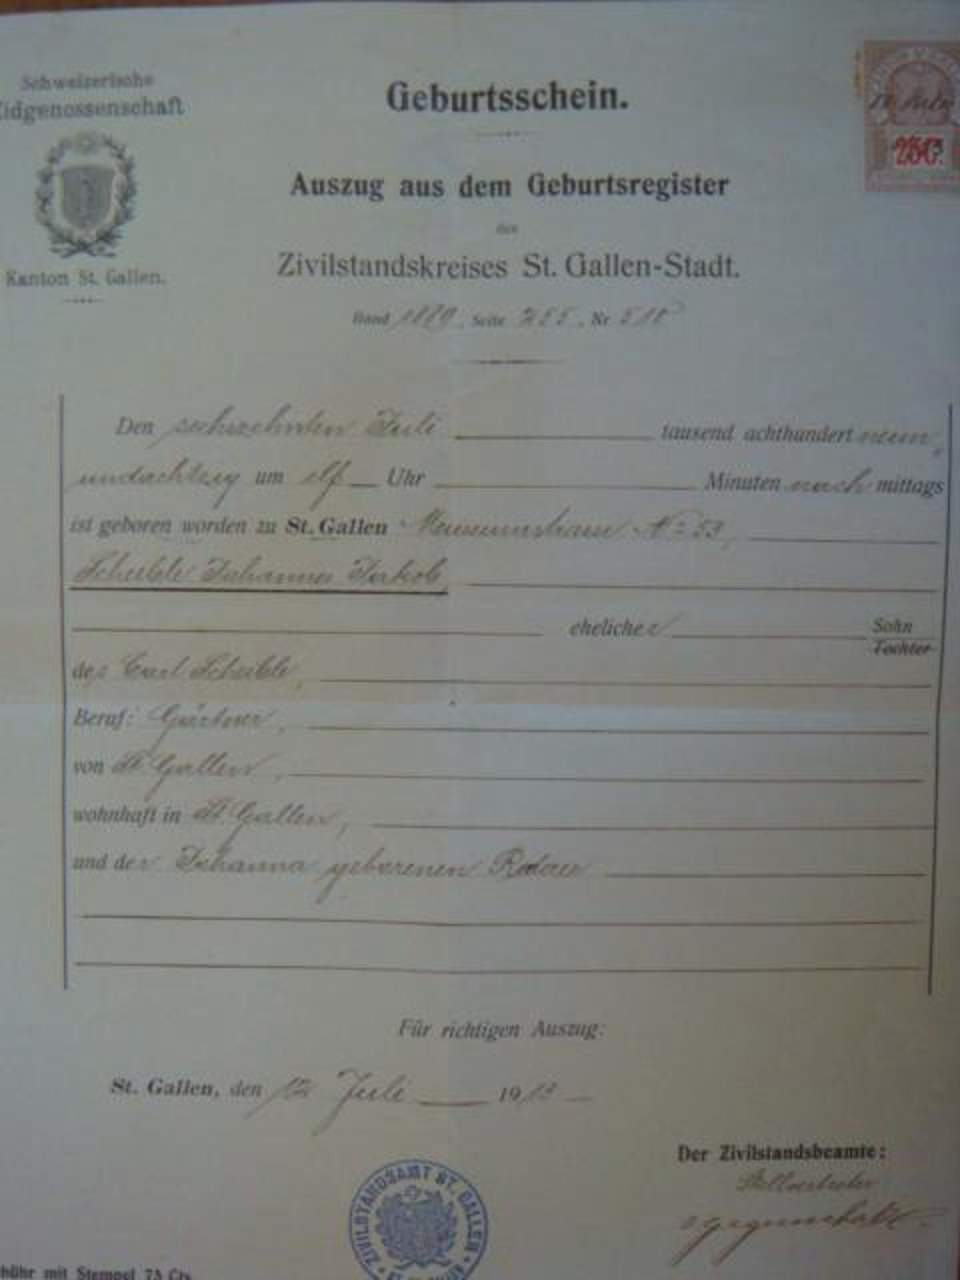 Schweizerische
Eidgenossenschaft
Kanton St. Gallen.
Geburtsschein.
Auszug aus dem Geburtsregister
des
Zivilstandskreises St. Gallen-Stadt.
Band 1889, Seite 255, Nr 518
Den sechszehnten Juli tausend achthundert neun,
undachtzig um elf Uhr Minuten nach mittags
ist geboren worden zu St. Gallen No 53,
Scheible Johannes Jakob,
ehelicher Sohn
Tochter
des Carl Scheible,
Beruf: Gärtner,
von St. Gallen,
wohnhaft in St. Gallen,
und der Johanna geborenen
Für richtigen Auszug:
St. Gallen, den 12 Juli 1913
Der Zivilstandsbeamte:
Stellvertreter
ZIVILSTANDSAMT ST. GALLEN
bühr mit Stempel 75 Cts.